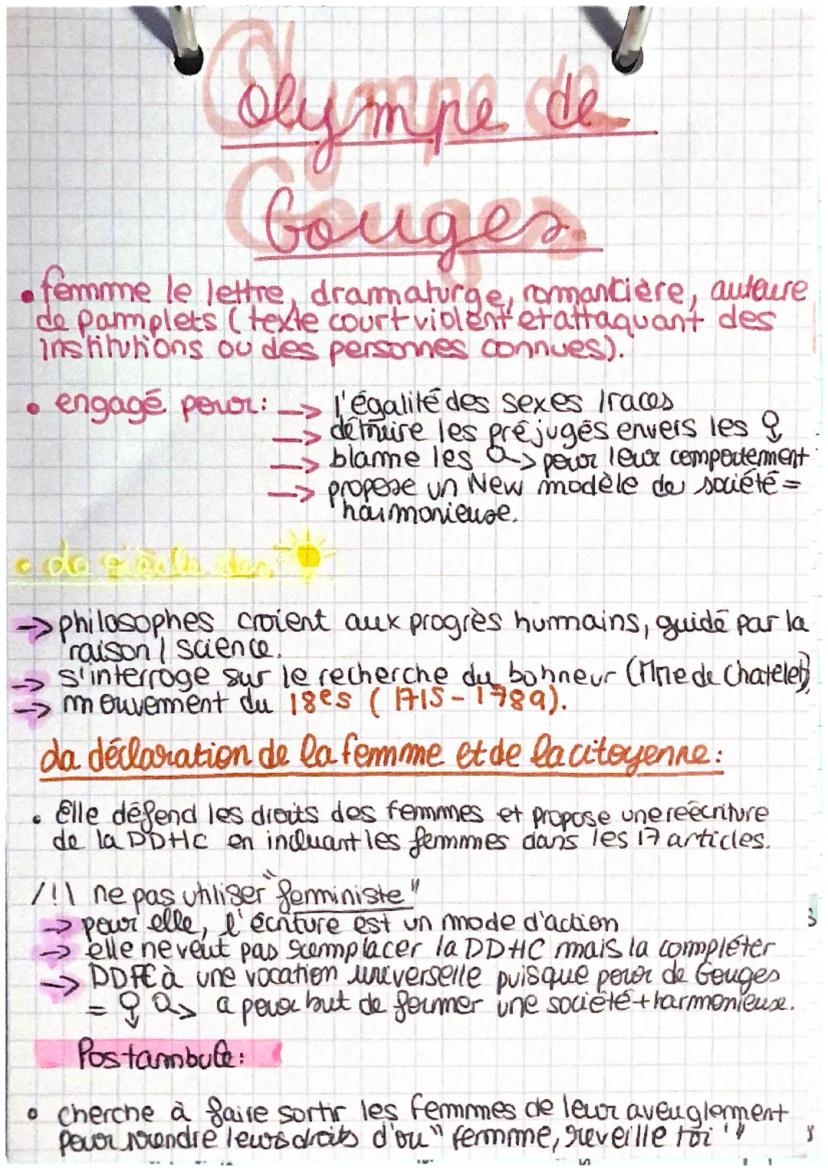 Olympe de
Gouges
• femme le lettre, dramaturge, romantière, auteure
de pamplets (texte court violent et attaquant des
institutions ou des personnes connues).
• engagé pour: → l'égalité des sexes / races
→ détruire les préjugés envers les ♀
→ blame les ♂ pour leur comportement
→ propose un New modèle de société =
harmonieuse.
• Le siècle des ☀
→ philosophes croient aux progrès humains, guidé par la
raison / science.
→ s'interroge sur le recherche du bonheur (Mme de Chatelet)
→ mouvement du 18es (1715-1789).
La déclaration de la femme et de la citoyenne:
• Elle défend les droits des femmes et propose une réécriture
de la DDHC en incluant les femmes dans les 17 articles.
/!\ ne pas utiliser "feministe"
→ pour elle, l'écriture est un mode d'action
→ elle ne veut pas remplacer la DDHC mais la compléter
→ DDFC à une vocation universelle puisque pour de Gouges
= ♀ ♂ a pour but de former une société + harmonieuse.
Postambule:
• cherche à faire sortir les femmes de leur aveuglement
pour rendre leurs droits d'ou "femme, reveille toi"